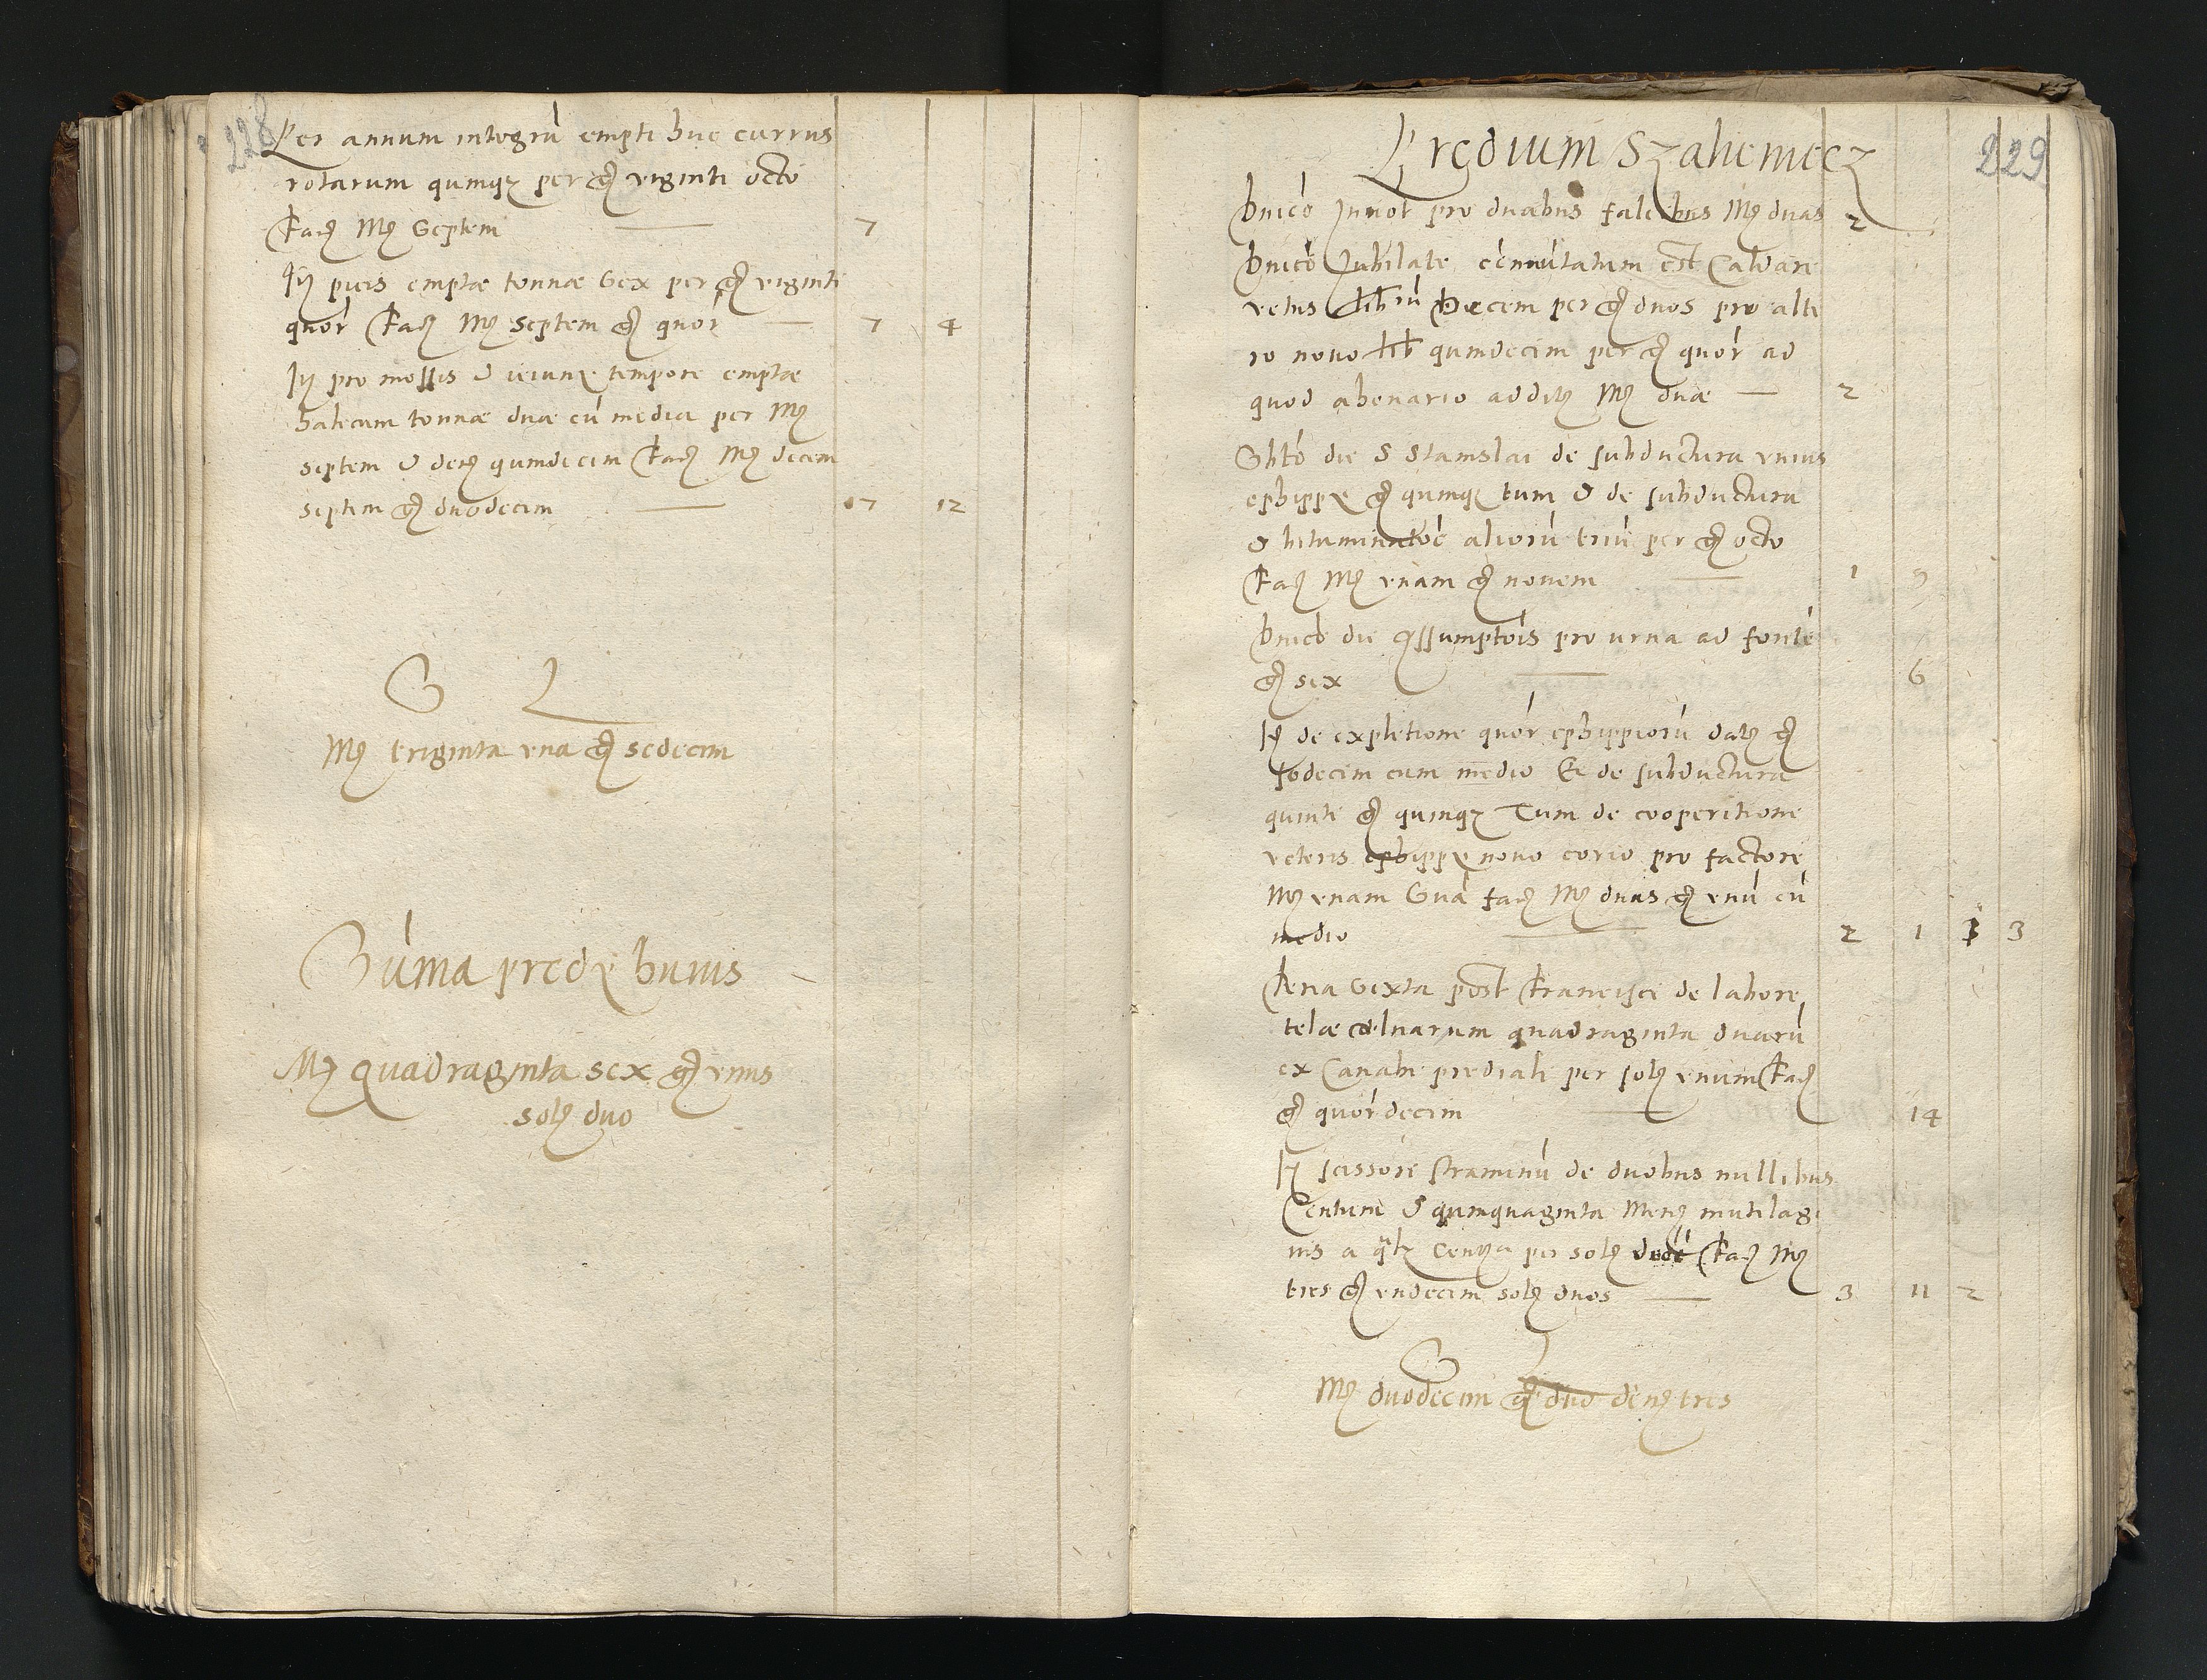 228
Per annum integrũ empti huc currus
rotarum quinqz per gͬ viginti octo
fac̄ Mͨ Septem — 7
Itͫ picis emptæ tonnæ Sex per gͬ viginti
quor fac̄ Mͨ septem gͬ quor — 7 4
Itͫ pro messis & ieiunÿ tempore emptæ
halecum tonnæ duæ cũ media per Mͨ
septem & denͬ quindecim fac̄ Mͨ decem
septem gͬ duodecim — 17 12
S L
Mͨ triginta una gͬ sedecim
Sũma prędÿ huius
Mͨ quadraginta sex gͬ unus
solͩ duo
229
Prędium Szahemecz
Dnico pro duabus falcibus Mͨ duas 2
Dnico Jubilate cõmutatum est Caldare
vetus librũ Decem per gͬ duos pro alte
ro novo lib quindecim per gͬ quor ad
quod ahenario additͤ Mͨ duæ — 2
Sbto die S Stanislai de subductura unius
ephippÿ gͬ quinqz tum & de subductura
& aliorũ triũ per gͬ octo
fac̄ Mͨ unam gͬ novem — 1 9
Dnico die Assumptois pro urna ad fontẽ
gͬ sex — 6
Itͫ de expletione quor ephippiorũ datͤ gͬ
sedecim cum medio Et de subductura
quinti gͬ quinqz Tum de cooperitione
veteris ephippÿ novo corio pro factore
Mͨ unam Sũa fac̄ Mͨ duas gͬ unũ cũ
medio — 2 1 3
feria Sexta post Francisci de labore
telæ ulnarum quadraginta duarũ
ex Canabe prediali per solͩ unum fac̄
gͬ quordecim — 14
Itͫ scissori straminũ de duobus millibus
Centum & quinquaginta
a qͣlz per solͩ fac̄ Mͨ
tres gͬ undecim solͩ duos — 3 11 2
S L
Mͨ duodecim gͬ duo denͬ tres